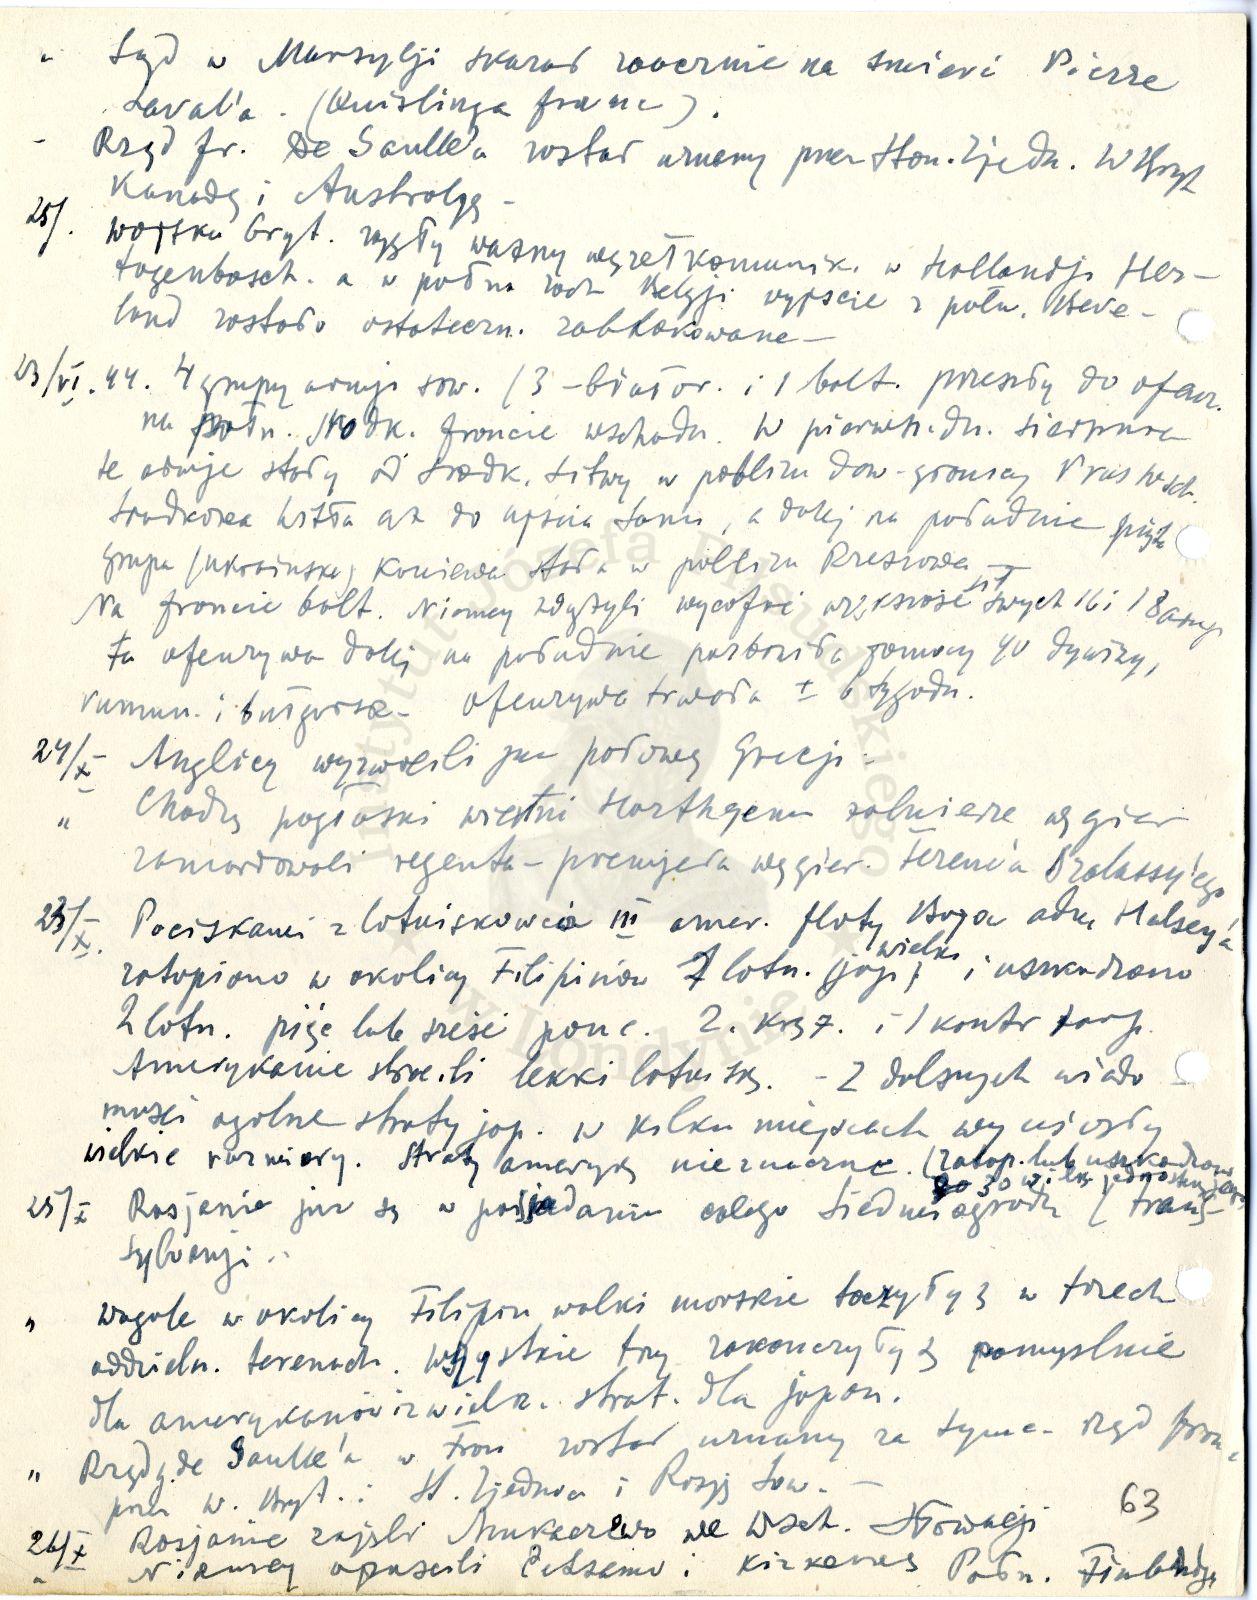 " Sąd w Marsylji skazał zaocznie na śmierć Pierre
Laval'a. (Quislinga franc).
- Rząd fr. De Gaulle'a został uznany przez Stan. Zjedn. W Bryt
Kanadę i Australję -
25/. wojska bryt. zajęły ważny węzeł komunik. w Hollandji Her-
togenbosch. a w półn zach Belgji wyjście z połu. Beve-
land zostało ostateczn. zablokowane -
23/VI. 44. 4 grupy armji sow. (3 - białor. i 1 bałt. przeszły do ofenz.
na półn. środk. froncie wschodn. W pierwsz. dn. sierpnia
te armje stały od środk. Litwy w pobliżu daw. granicy Prus wsch.
środkowa Wisła aż do ujścia Sanu, a dalej na południe piąta
grupa (ukraińska) Koniewa stała w pobliżu Rzeszowa -
Na froncie bałt. Niemcy zdążyli wycofać większość swych 16 i 18 armji
Ta ofenzywa dalej na południe pozbawiła pomocy 40 dywizyj,
rumun. i bułgarsk - ofenzywa trwała ± 6 tygodn.
24/X Anglicy wyzwolili już połowę Grecji.
" Chodzą pogłoski wierni Horthyemu żołnierze węgier
zamordowali regenta - premjera węgier. Ferenc'a Szalassy'ego
23/X. Pociskami z lotniskowców III amer. floty Boga adm Halsey'a
zatopiono w okolicy Filipinów 1 lotn. wielki (jap) i uszkodzono
2 lotn. pięć lub sześć panc. 2. krąż. i 1 kontr torp.
Amerykanie stracili lekki lotnisk. - Z dalszych wiado
mości ogólne straty jap. w kilku miejscach wyniosły
wielkie rozmiary. Straty ameryk nieznaczne. (zatop. lub uszkodzono
30 wielk jednostek jap)
25/X Rosjanie już są w posiadaniu całego Siedmiogrodu (Trans-
sylwanji.
" wogóle w okolicy Filipin walki morskie toczyły się w trzech
oddzieln. terenach. Wszystkie trzy zakończyły się pomyślnie
dla amerykanów i z wielk. strat. dla japon.
" Rząd de Gaulle'a w Fran został uznany za tymcz. rząd franc
przez W. Bryt. : St. Zjednocz i Rosję Sow. -
26/X Rosjanie zajęli Munkaczewo we Wsch. Słowacji
" Niemcy opuścili Petsamo i Kirkenes Półn. Finlandja
63
Instytut Józefa Piłsudskiego
w Londynie